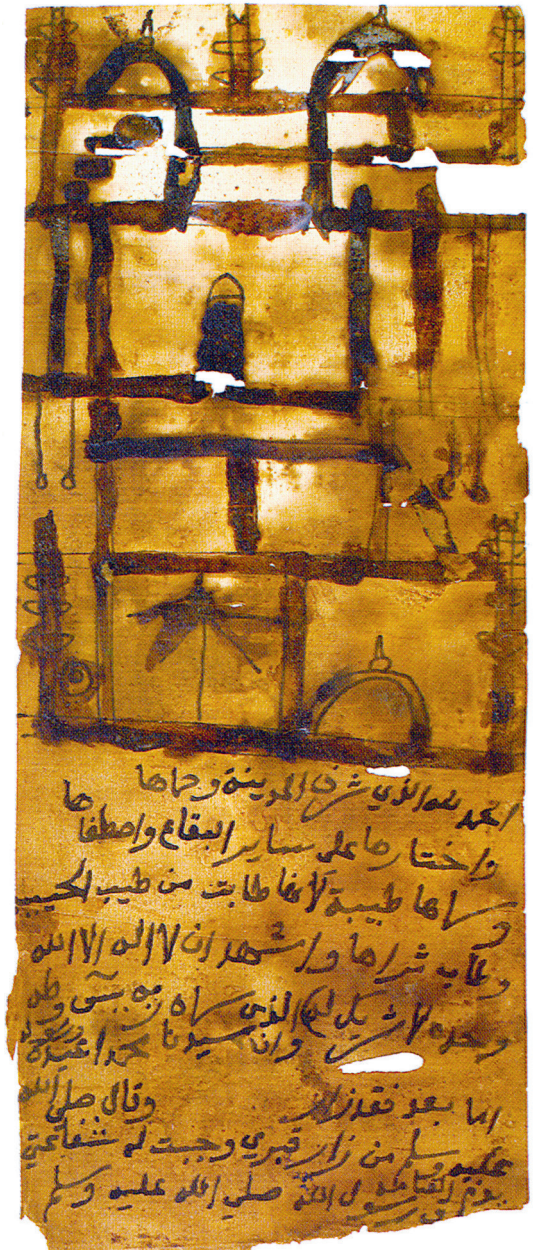 الحمد لله الذي شرف المدينة وحماها
واختارها على ساير البقاع واصطفاها
وسماها طيبة لانها طابت من طيب الحبيب
وطاب ثراها واشهد ان لا اله الا الله
وحده لا شريك له الذي سماه ربه بيس وطه
وان سيدنا محمدا عبده ورسوله
اما بعد فقد زار وقال صلى الله
عليه وسلم من زار قبري وجبت له شفاعتي
يوم القيامة صلي الله عليه وسلم